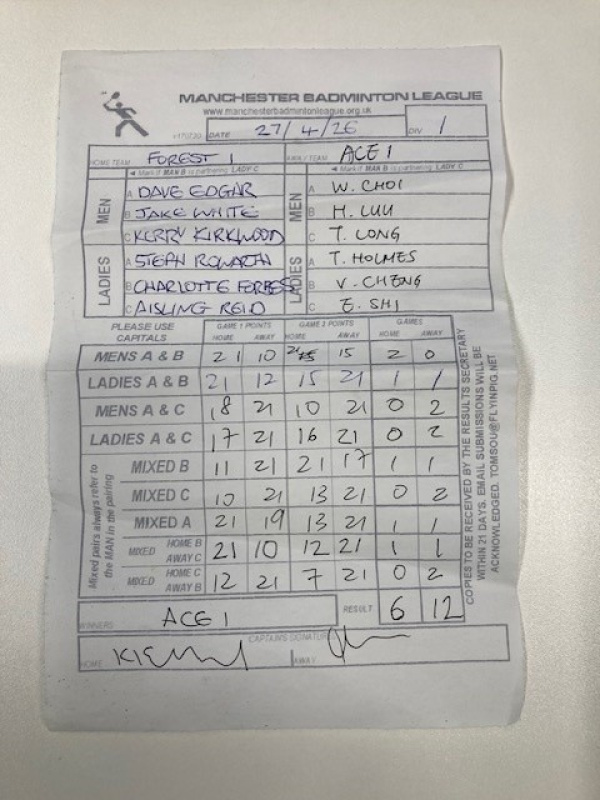 MANCHESTER BADMINTON LEAGUE
www.manchesterbadmintonleague.org.uk
v170720 DATE 27/4/26 DIV 1
HOME TEAM FOREST 1 AWAY TEAM ACE 1
◄ Mark if MAN B is partnering LADY C ◄ Mark if MAN B is partnering LADY C
MEN A DAVE EDGAR MEN A W. CHOI
B JAKE WHITE B H. LUU
C KERRY KIRKWOOD C T. LONG
LADIES A STEPH ROWARTH LADIES A T. HOLMES
B CHARLOTTE FORBESS B V. CHENG
C AISLING REID C E. SHI
PLEASE USE CAPITALS GAME 1 POINTS GAME 2 POINTS GAMES
HOME AWAY HOME AWAY HOME AWAY
MENS A & B 21 10 21 15 2 0
LADIES A & B 21 12 15 21 1 1
MENS A & C 18 21 10 21 0 2
LADIES A & C 17 21 16 21 0 2
Mixed pairs always refer to the MAN in the pairing
MIXED B 11 21 21 17 1 1
MIXED C 10 21 13 21 0 2
MIXED A 21 19 13 21 1 1
MIXED HOME B AWAY C 21 10 12 21 1 1
MIXED HOME C AWAY B 12 21 7 21 0 2
WINNERS ACE 1 RESULT 6 12
CAPTAIN'S SIGNATURE
HOME AWAY
COPIES TO BE RECEIVED BY THE RESULTS SECRETARY
WITHIN 21 DAYS. EMAIL SUBMISSIONS WILL BE
ACKNOWLEDGED. TOMSOU@FLYINPIG.NET